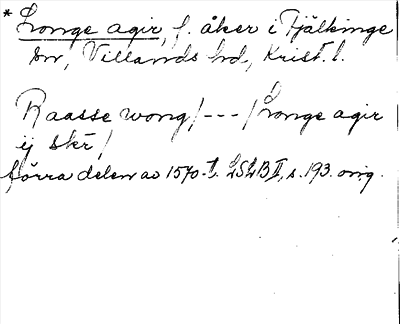 * Longe agir, f. åker i Fjälkinge
sn, Villands hd, Krist. l.
Raasse wong/---/Longe agir
ij skr/
Förra delen av 1570-t. LSLB II, s. 193. orig.